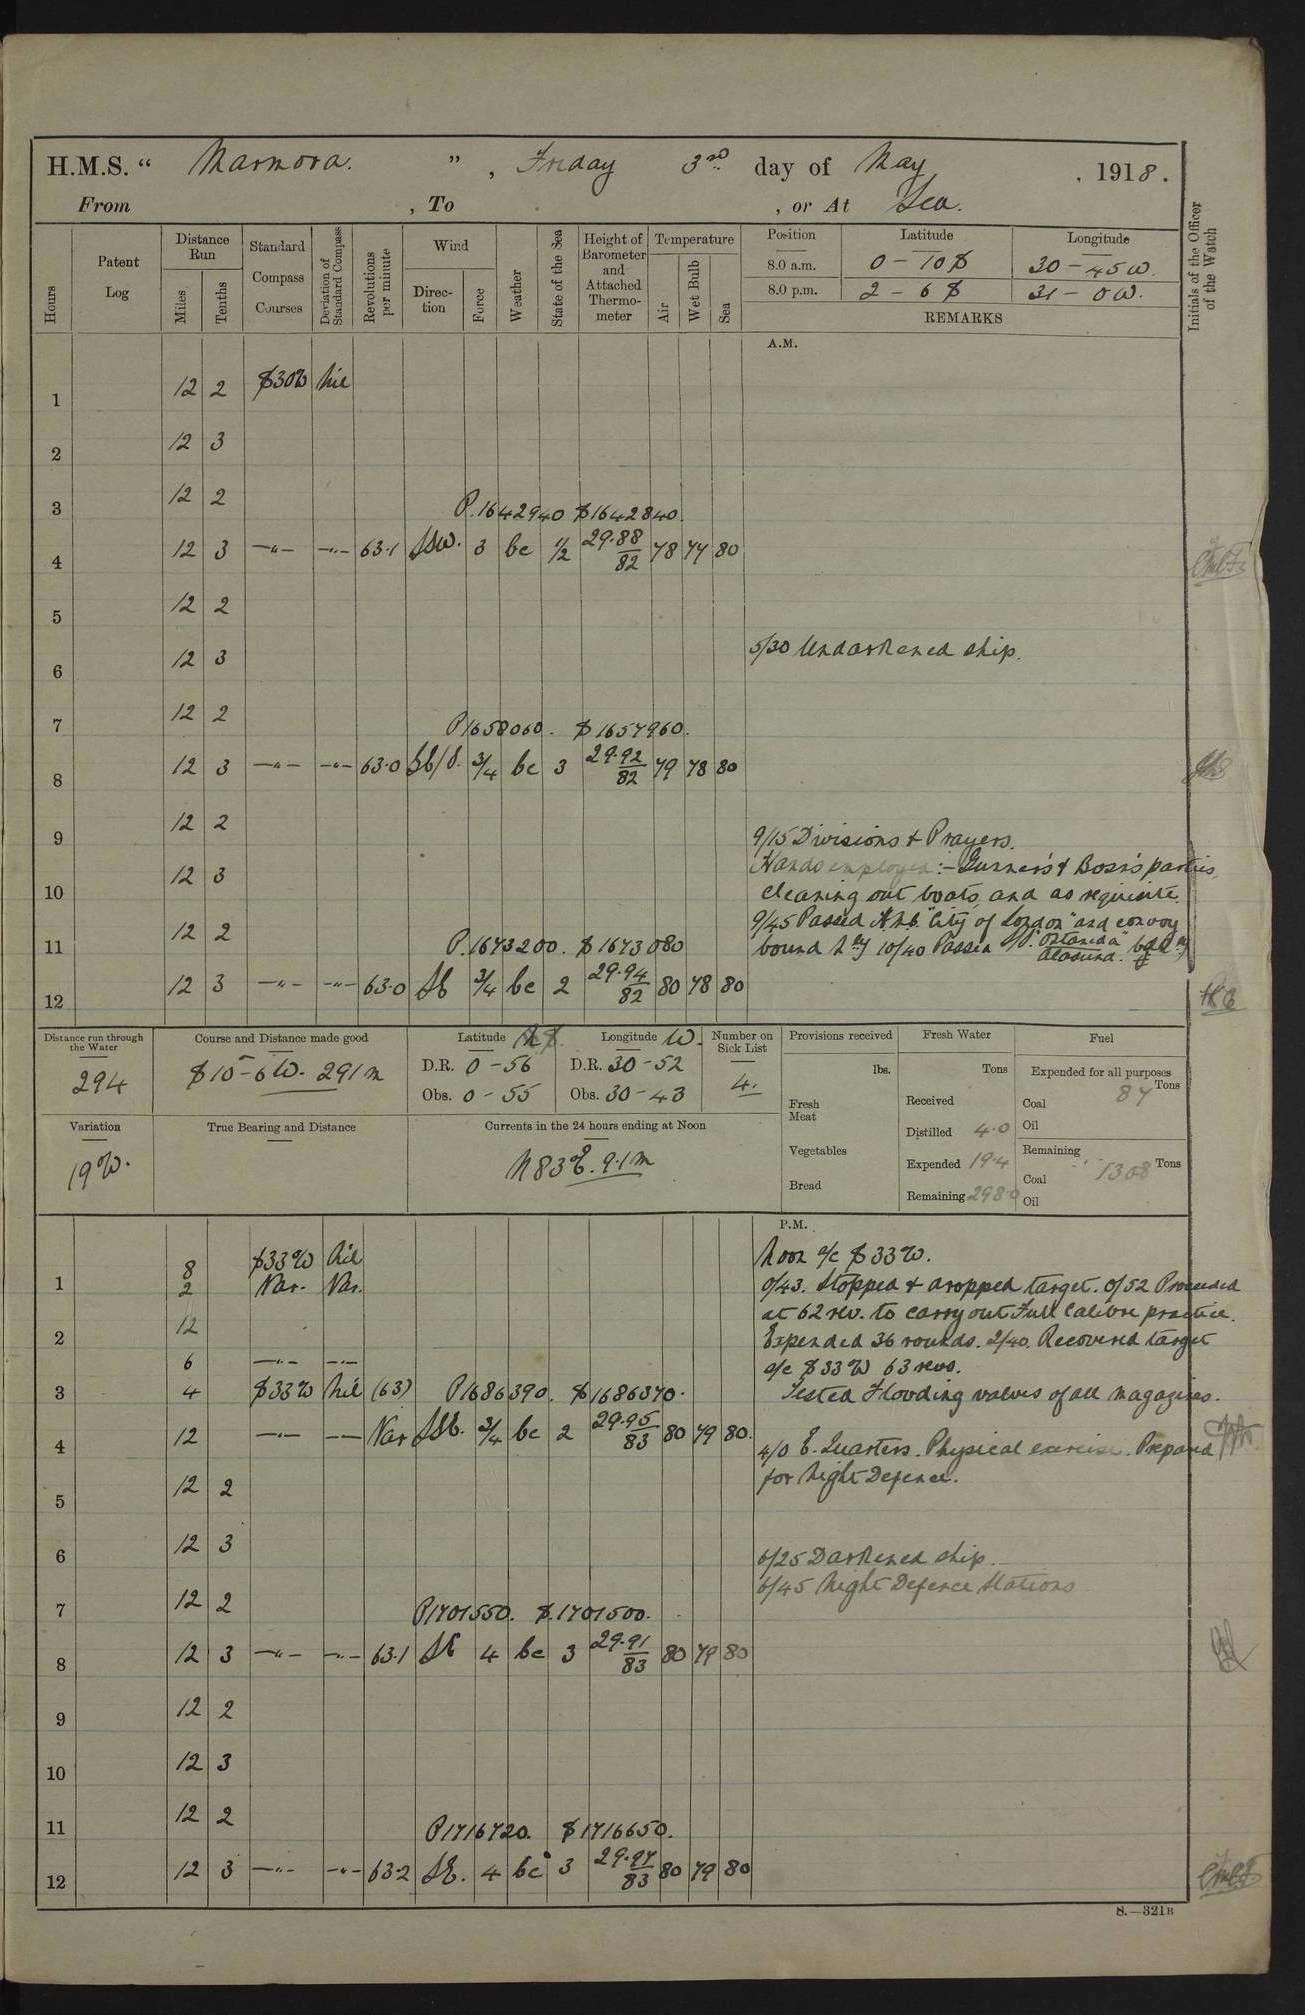 H.M.S. “ Marmora. ” , Friday 3rd day of May , 1918.
From , To , or At Sea.
Hours Patent Log Distance Run Miles Tenths Standard Compass Courses Deviation of Standard Compass Revolutions per minute Wind Direction Force Weather State of the Sea Height of Barometer and Attached Thermometer Temperature Air Wet Bulb Sea Position Latitude Longitude Initials of the Officer of the Watch
8.0 a.m. 0 - 10 S 30 - 45 W.
8.0 p.m. 2 - 6 S 31 - 0 W.
REMARKS
A.M.
1 12 2 S30W Nil
2 12 3
3 12 2
P.1642940 S1642840.
4 12 3 -"- -"- 63.1 SSW. 3 bc 1/2 29.88/82 78 77 80
5 12 2
6 12 3 5/30 Undarkened ship.
7 12 2
P1658060. S1657960.
8 12 3 -"- -"- 63.0 3/4 bc 3 29.92/82 79 78 80
9 12 2 9/15 Divisions & Prayers.
10 12 3 Hands employed :- Gunner's & Bosn's parties,
cleaning out boats, and as requisite.
11 12 2 9/45 Passed "City of London" and convoy
P.1673200. S1673080
bound 10/40 Passed
12 12 3 -"- -"- 63.0 SE 3/4 bc 2 29.94/82 80 78 80
Distance run through the Water 294
Course and Distance made good S 10-6 W. 291m
Latitude S. D.R. 0-56 Obs. 0-55
Longitude W. D.R. 30-52 Obs. 30-43
Number on Sick List 4.
Provisions received lbs. Fresh Meat Vegetables Bread
Fresh Water Tons Received Distilled 40 Expended 194 Remaining 2980
Fuel Expended for all purposes Tons Coal 87 Oil Remaining Tons Coal 1308 Oil
Variation 19W.
True Bearing and Distance
Currents in the 24 hours ending at Noon N83E. 9.1m
P.M.
S33W Nil Noon a/c S33W.
1 8 2 Var. Var. 0/43. Stopped & dropped target. 0/52 Proceeded
at 62 rev. to carry out Full Calibre practice.
2 12 Expended 36 rounds. 2/40. Recovered target
6 -"- -"- a/c S33W 63 revs.
3 4 S33W Nil (63) P1686390. S1686370. Tested Flooding valves of all magazines.
4 12 -"- -"- Var SSE. 3/4 bc 2 29.95/83 80 79 80.
4/0 E. Quarters. Physical exercise. Prepared
for Night Defence.
5 12 2
6 12 3 6/25 Darkened ship.
6/45 Night Defence Stations
7 12 2
P1701550. S.1701500.
8 12 3 -"- -"- 63.1 SE 4 bc 3 29.91/83 80 79 80
9 12 2
10 12 3
11 12 2
P1716720. S1716650.
12 12 3 -"- -"- 63.2 SE. 4 bc 3 29.97/83 80 79 80
S.—321B